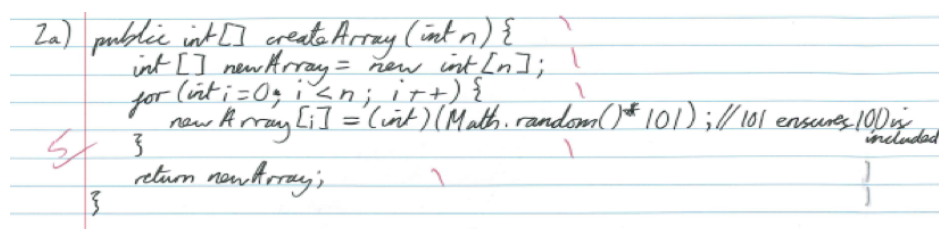 2a) public int[] createArray (int n) {
int [] newArray = new int [n];
for (int i=0; i<n; i++) {
newArray [i] = (int) (Math.random()* 101); // 101 ensures 100 is
included
}
5
return newArray;
}